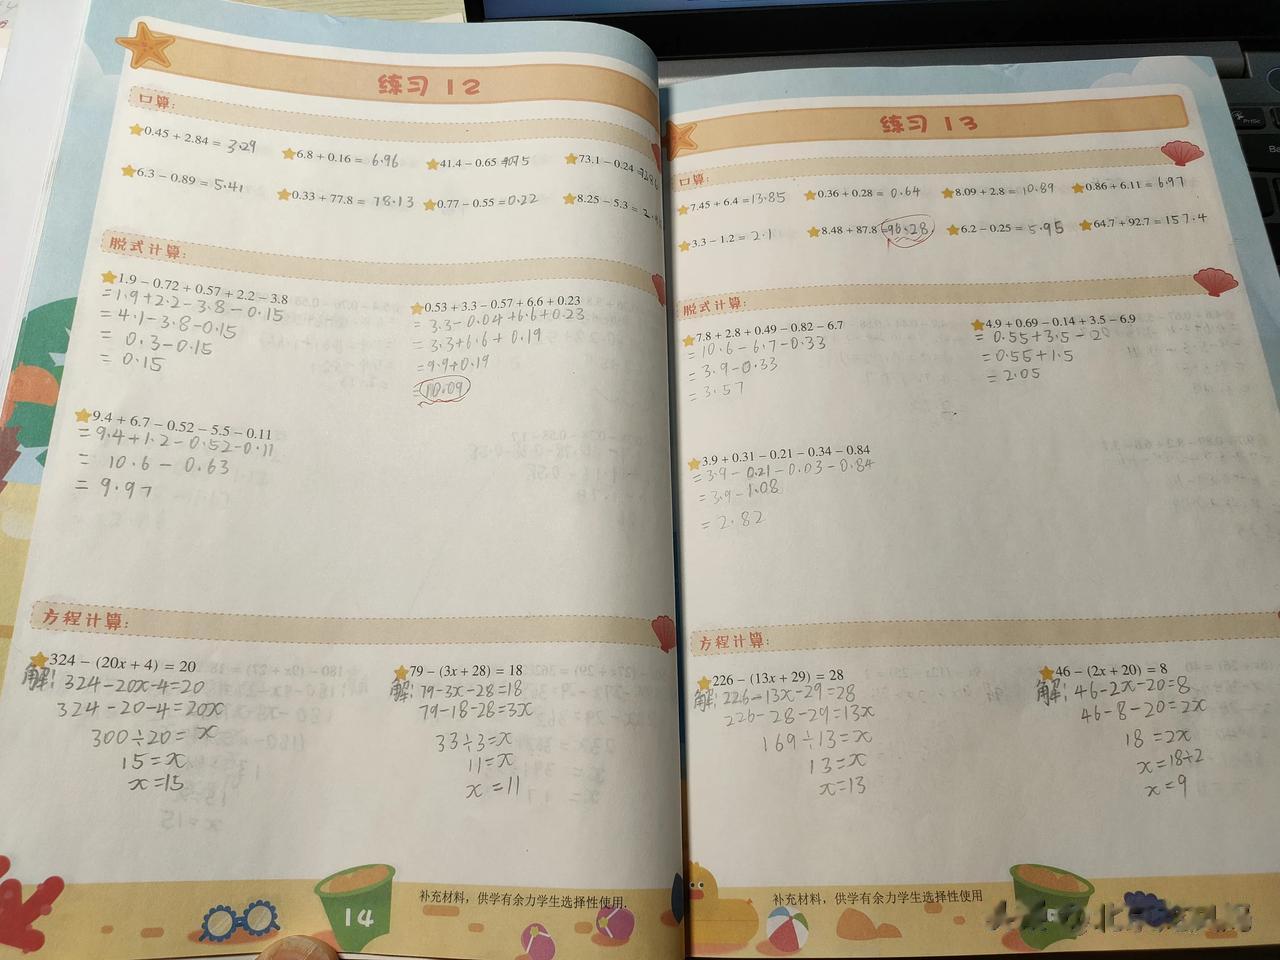 练习 12
口算：
0.45 + 2.84 = 3.29
6.8 + 0.16 = 6.96
41.4 − 0.65
73.1 − 0.24
6.3 − 0.89 = 5.41
0.33 + 77.8 = 78.13
0.77 − 0.55 = 0.22
8.25 − 5.3 =
脱式计算：
1.9 − 0.72 + 0.57 + 2.2 − 3.8
=1.9+2.2−3.8−0.15
=4.1−3.8−0.15
= 0.3−0.15
= 0.15
0.53 + 3.3 − 0.57 + 6.6 + 0.23
= 3.3−0.04+6.6+0.23
= 3.3+6.6+0.19
=9.9+0.19
=10.09
9.4 + 6.7 − 0.52 − 5.5 − 0.11
=9.4+1.2−0.52−0.11
= 10.6−0.63
= 9.97
方程计算：
324 − (20x + 4) = 20
解：324−20x−4=20
324−20−4=20x
300÷20=x
15=x
x=15
79 − (3x + 28) = 18
解：79−3x−28=18
79−18−28=3x
33÷3=x
11=x
x=11
14
补充材料，供学有余力学生选择性使用.
练习 13
口算：
7.45 + 6.4 = 13.85
0.36 + 0.28 = 0.64
8.09 + 2.8 = 10.89
0.86 + 6.11 = 6.97
3.3 − 1.2 = 2.1
8.48 + 87.8 = 96.28
6.2 − 0.25 = 5.95
64.7 + 92.7 = 157.4
脱式计算：
7.8 + 2.8 + 0.49 − 0.82 − 6.7
= 10.6−6.7−0.33
= 3.9−0.33
=3.57
4.9 + 0.69 − 0.14 + 3.5 − 6.9
= 0.55+3.5−2
=0.55+1.5
= 2.05
3.9 + 0.31 − 0.21 − 0.34 − 0.84
=3.9−0.21−0.03−0.84
=3.9−1.08
=2.82
方程计算：
226 − (13x + 29) = 28
解：226−13x−29=28
226−28−29=13x
169÷13=x
13=x
x=13
46 − (2x + 20) = 8
解：46−2x−20=8
46−8−20=2x
18=2x
x=18÷2
x=9
补充材料，供学有余力学生选择性使用